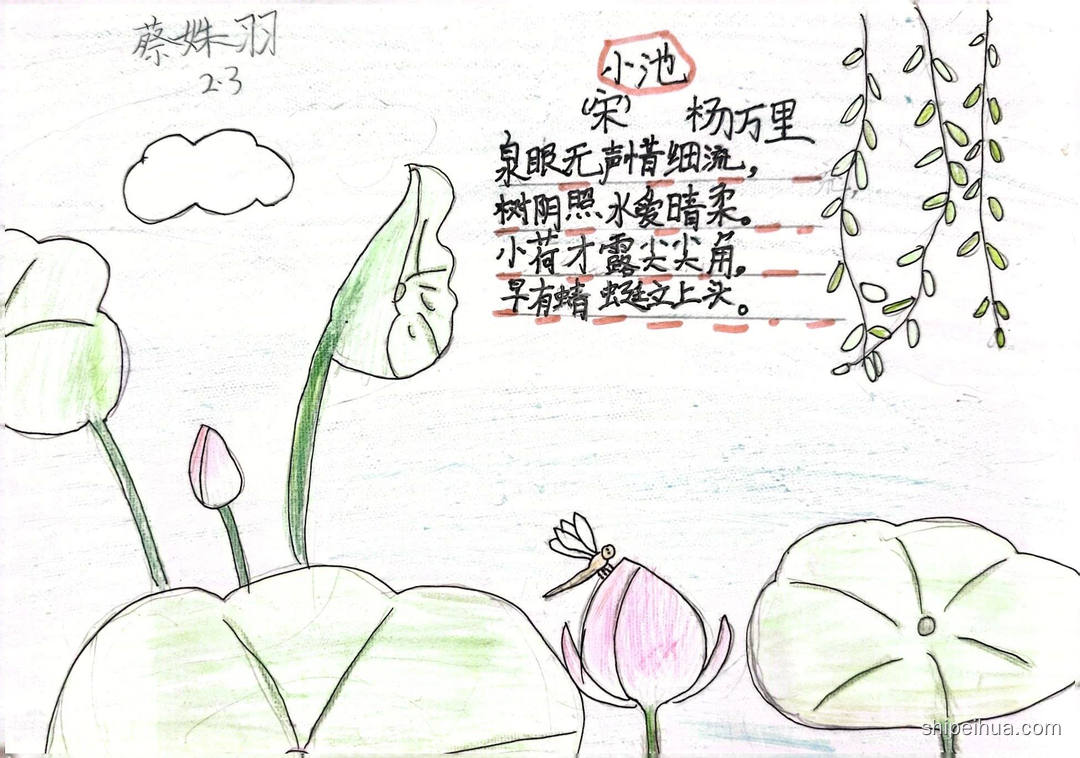 蔡姝羽
2.3
小池
(宋) 杨万里
泉眼无声惜细流，
树阴照水爱晴柔。
小荷才露尖尖角，
早有蜻蜓立上头。
shipeihua.com